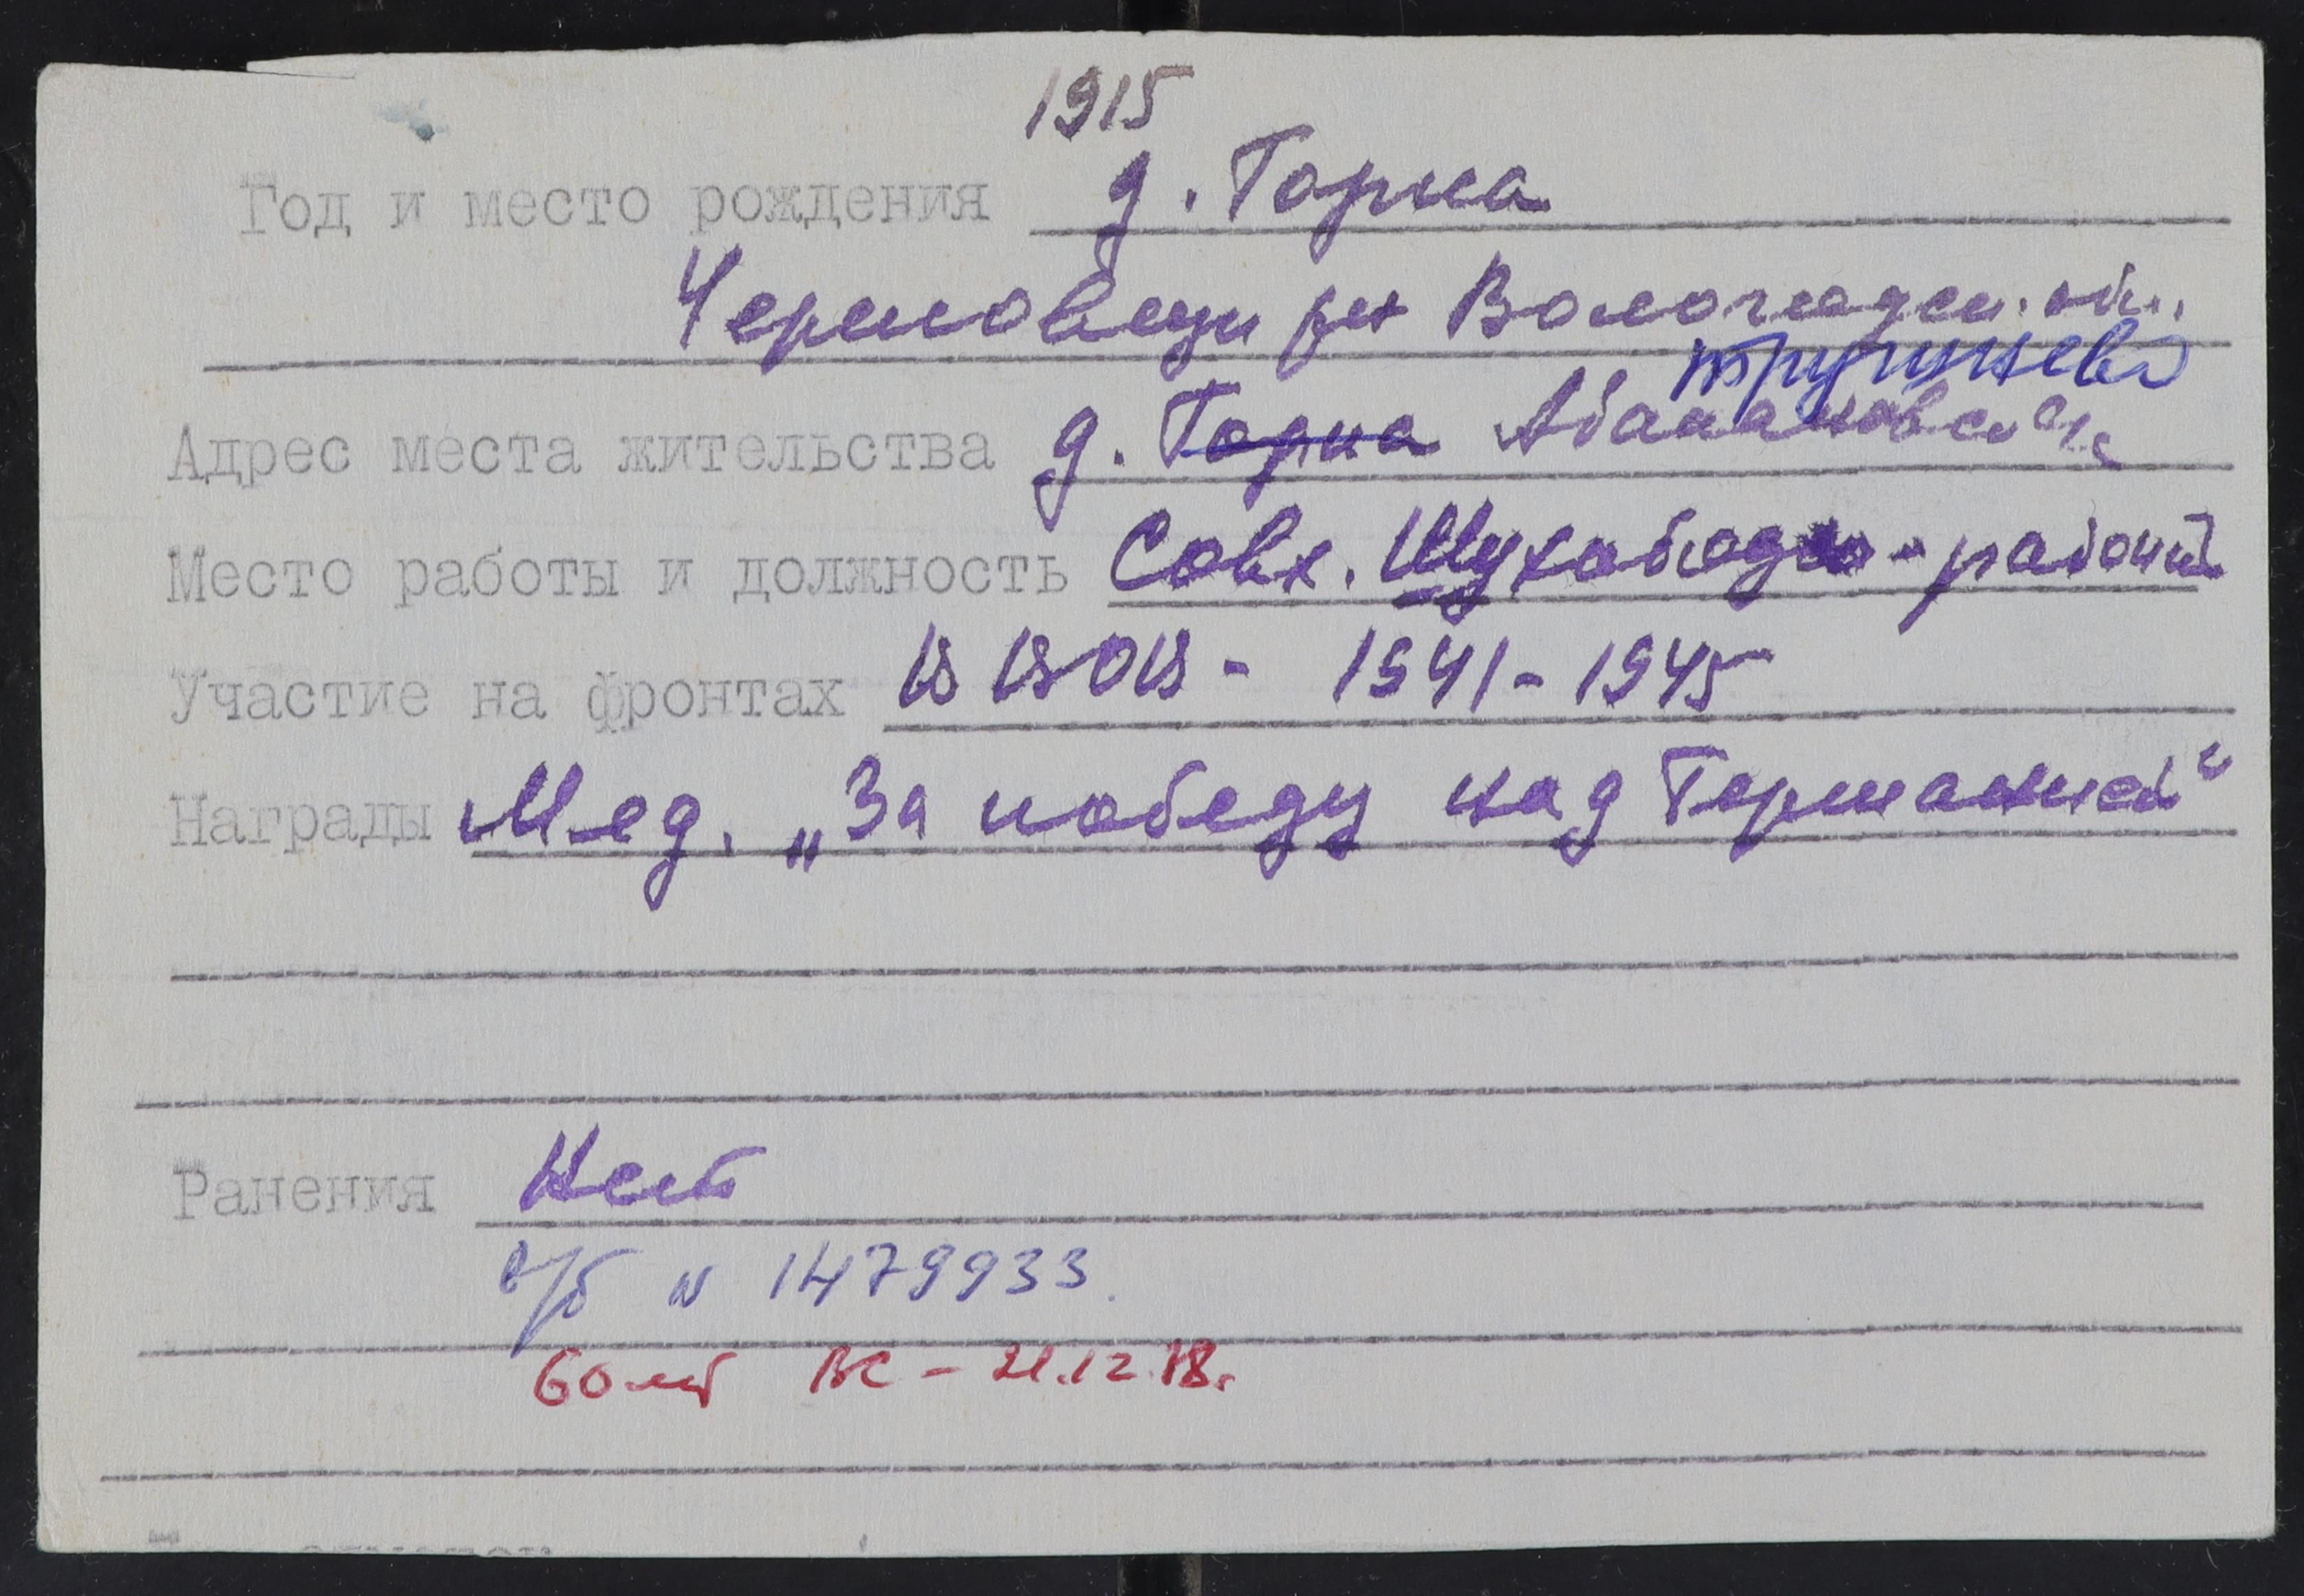 1915
Год и место рождения д. Горка
Череповецк р-н Вологодск. обл.
Трутнево
Адрес места жительства д. Горка Абакановск
Место работы и должность Совх. Шухободь - рабочий
Участие на фронтах В ВОВ - 1941-1945
Награды Мед. „За победу над Германией"
Ранения Нет
в/б N 1479933.
60 лет ВС - 21.12.78.